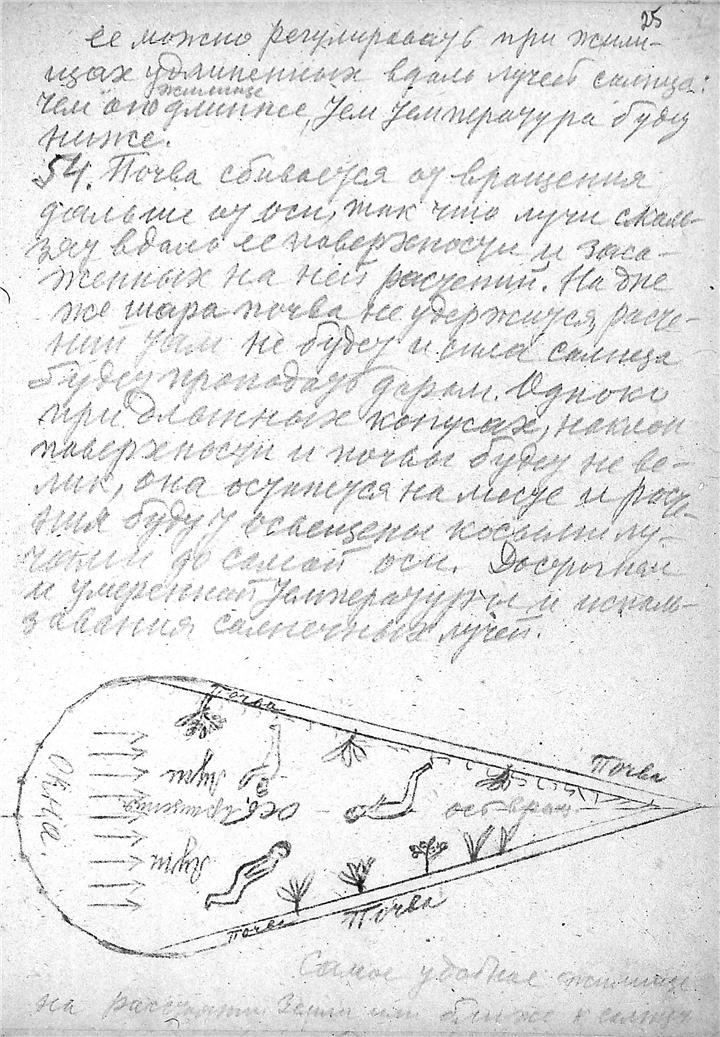 25
ее можно регулировать при жили-
щах удлиненных вдоль лучей солнца:
чем оно длиннее, тем температура будет
жилище
ниже.
54. Почва сбивается от вращения
дальше от оси, так что лучи сколь-
зят вдоль ее поверхности и заса-
женных на ней растений. На дне
же шара почва не удержится, расте-
ний там не будет и сила солнца
будет пропадать даром. Однако
при длинных конусах, наклон
поверхности и почвы будет не ве-
лик, она останется на месте и расте-
ния будут освещены косыми лу-
чами до самой оси.
и умеренной температуры и исполь-
зования солнечных лучей.
Почва
Почва
Окна.
Лучи
Ось вращения
ось вращ
Лучи
Почва
Почва
Самое удобное жилище
на расстоянии Земли или ближе к солнцу